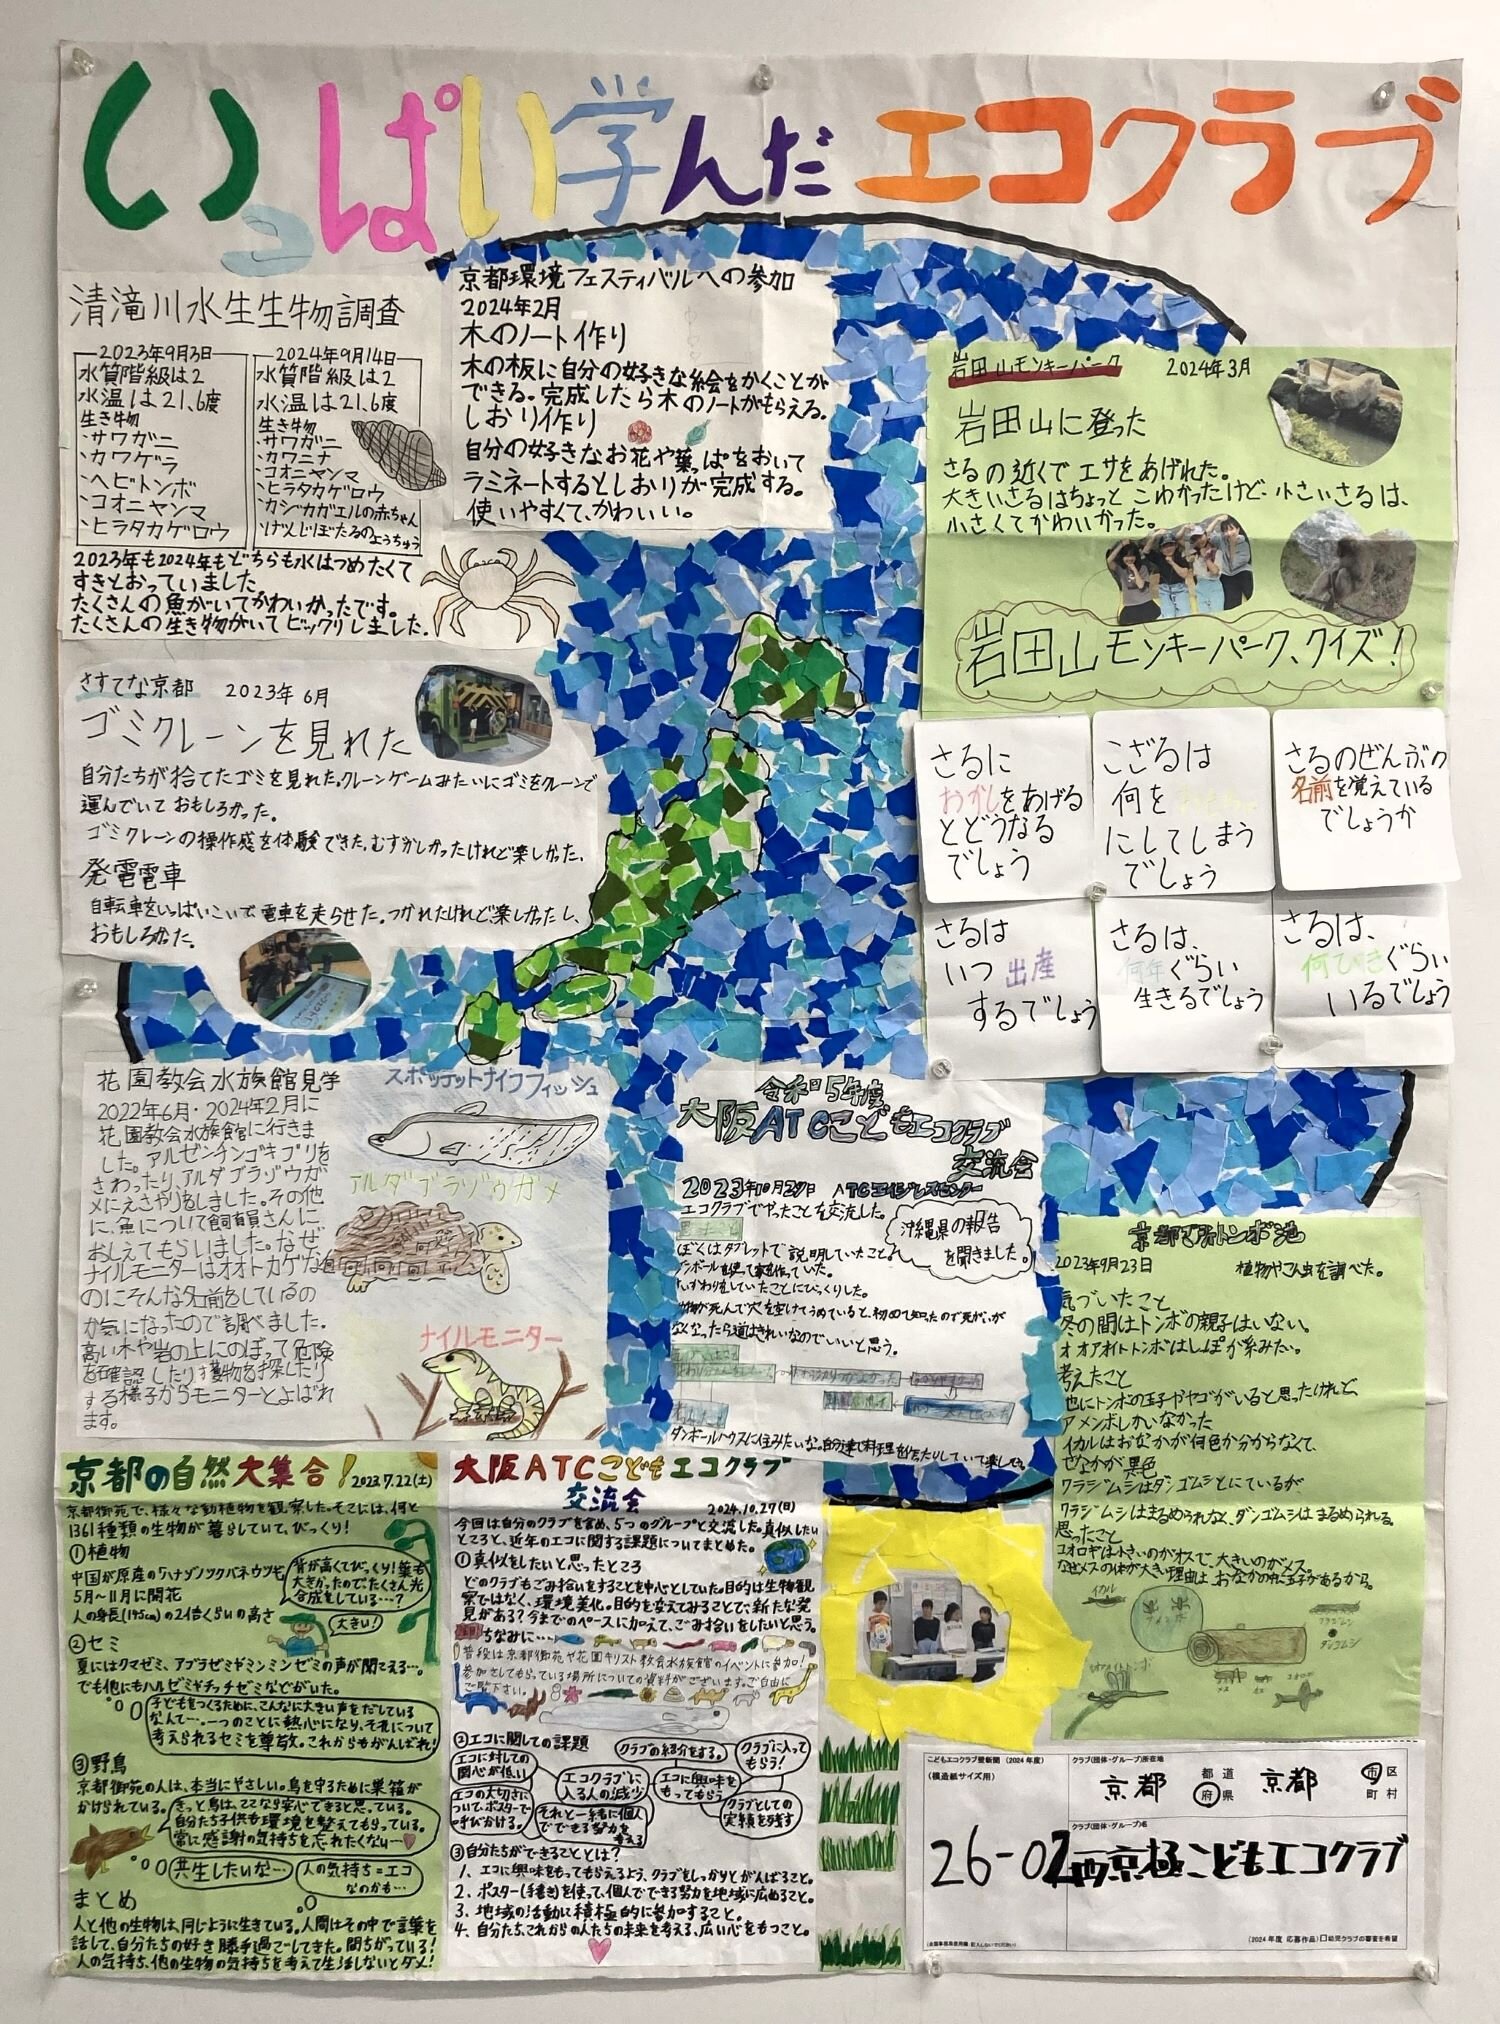 いっぱい学んだエコクラブ
清滝川水生生物調査
2023年9月3日
水質階級は2
水温は21.6度
生き物
・サワガニ
・カワゲラ
・ヘビトンボ
・コオニヤンマ
・ヒラタカゲロウ
2024年9月14日
水質階級は2
水温は21.6度
生き物
・サワガニ
・カワニナ
・コオニヤンマ
・ヒラタカゲロウ
・カジカガエルの赤ちゃん
・げんじぼたるのようちゅう
2023年も2024年もどちらも水はつめたくて
すきとおっていました
たくさんの魚がいてかわいかったです。
たくさんの生き物がいてビックリしました。
京都環境フェスティバルへの参加
2024年2月
木のノート作り
木の板に自分の好きな絵をかくことが
できる。完成したら木のノートがもらえる。
しおり作り
自分の好きなお花や葉っぱをおいて
ラミネートするとしおりが完成する。
使いやすくて、かわいい。
岩田山モンキーパーク 2024年3月
岩田山に登った
さるの近くでエサをあげれた。
大きいさるはちょっとこわかったけど、小さいさるは、
小さくてかわいかった。
岩田山モンキーパーク、クイズ!
さるに
おかしをあげる
とどうなる
でしょう
こざるは
何を
にしてしまう
でしょう
さるのぜんぶの
名前を覚えている
でしょうか
さるは
いつ出産
するでしょう
さるは、
何年ぐらい
生きるでしょう
さるは、
何ひきぐらい
いるでしょう
さすてな京都 2023年6月
ゴミクレーンを見れた
自分たちが捨てたゴミを見れた。クレーンゲームみたいにゴミをクレーンで
運んでいておもしろかった。
ゴミクレーンの操作感を体験できた。むずかしかったけれど楽しかった。
発電電車
自転車をいっぱいこいで電車を走らせた。つかれたけれど楽しかったし、
おもしろかた。
花園教会水族館見学
2022年6月・2024年2月に
花園教会水族館に行きま
した。アルゼンチンゴキブリを
さわったり、アルダブラゾウガ
メにえさやりをしました。その他
に、魚について飼育員さんに
おしえてもらいました。なぜ
ナイルモニターはオオトカゲな
のにそんな名前をしているの
か気になったので調べました。
高い木や岩の上にのぼって危険
を確認したり獲物を探したり
する様子からモニターとよばれ
ます。
スポッテットナイフフィッシュ
アルダブラゾウガメ
ナイルモニター
令和5年度
大阪ATCこどもエコクラブ
交流会
2023年10月29日 ATCエイジレスセンター
エコクラブでやったことを交流した。
沖縄県の報告
を聞きました。
ぼくはタブレットで説明していたこと。
ダンボールハウスに住みたいな。自分達で料理を作ったりしていて楽しそう。
京都御所トンボ池
2023年9月23日 植物やこん虫を調べた。
気づいたこと
冬の間はトンボの親子はいない。
オオアオイトトンボはしっぽが糸みたい。
考えたこと
池にトンボの玉子やヤゴがいると思ったけれど、
アメンボしかいなかった
イカルはおなかが何色か分からなくて、
せなかが黒色
ワラジムシはダンゴムシとにているが
ワラジムシはまるめられなく、ダンゴムシはまるめられる。
思ったこと
コオロギは小さいのがオスで、大きいのがメス
なぜメスの体が大きい理由は、おなかの中に玉子があるから。
イカル
ワラジムシ
ダンゴムシ
オオアオイトトンボ
京都の自然大集合! 2023.7.22(土)
京都御苑で、様々な動植物を観察した。そこには、何と
1361種類の生物が暮らしていて、びっくり!
①植物
中国が原産の「ハナゾノツクバネウツギ」
5月〜11月に開花
人の身長(145cm)の2倍くらいの高さ
背が高くてびっくり!葉も
大きかったので、たくさん光
合成をしている…?
大きい!
②セミ
夏にはクマゼミ、アブラゼミやミンミンゼミの声が聞こえる…。
でも他にもハルゼミやチッチゼミなどがいた。
子どもをつくるために、こんなに大きい声をだしている
なんて…。一つのことに熱心になり、それについて
考えられるセミを尊敬。これからもがんばれ!
③野鳥
京都御苑の人は、本当にやさしい。鳥を守るために巣箱が
かけられている。
きっと鳥は、ここなら安心できると思っている。
自分たち子供も環境を整えてもらっている。
常に感謝の気持ちを忘れたくない…
共生したいな…
人の気持ち=エコ
なのかも…
まとめ
人と他の生物は、同じように生きている。人間はその中で言葉を
話して、自分たちの好き勝手過ごしてきた。間ちがっている!
人の気持ち、他の生物の気持ちを考えて生活しないとダメ!
大阪ATCこどもエコクラブ
交流会
2024.10.27(日)
今回は自分のクラブを含め、5つのグループと交流した。真似したい
ところと、近年のエコに関する課題についてまとめた。
①真似をしたいと思ったところ
どのクラブもごみ拾いをすることを中心としていた。目的は生物観
察ではなく、環境美化。目的を変えてみることで、新たな発
見がある?今までのペースに加えて、ごみ拾いをしたいと思う。
ちなみに…
普段は京都御苑や花園キリスト教会水族館のイベントに参加!
参加させてもらっている場所についての資料がございます。ご自由に
ご覧下さい。
②エコに関しての課題
エコに対しての
関心が低い
エコの大切さに
ついて、ポスターで
呼びかける。
エコクラブに
入る人の減少
それと一緒に個人
でできる努力を
考える
クラブの紹介をする。
エコに興味を
もってもらう
クラブに入って
もらう!
クラブとしての
実績を残す
③自分たちができることとは?
1、エコに興味をもってもらえるよう、クラブをしっかりとがんばること。
2、ポスター(手書き)を使って、個人でできる努力を地域に広めること。
3、地域の活動に積極的に参加すること。
4、自分たち、これからの人たちの未来を考える、広い心をもつこと。
こどもエコクラブ壁新聞(2024年度)
(模造紙サイズ用)
クラブ(団体・グループ)所在地
京都 都道府県 京都 市区町村
クラブ(団体・グループ)名
26-02 西京極こどもエコクラブ
(全国事務局使用欄:記入しないでください)
(2024年度 応募作品)□幼児クラブの審査を希望